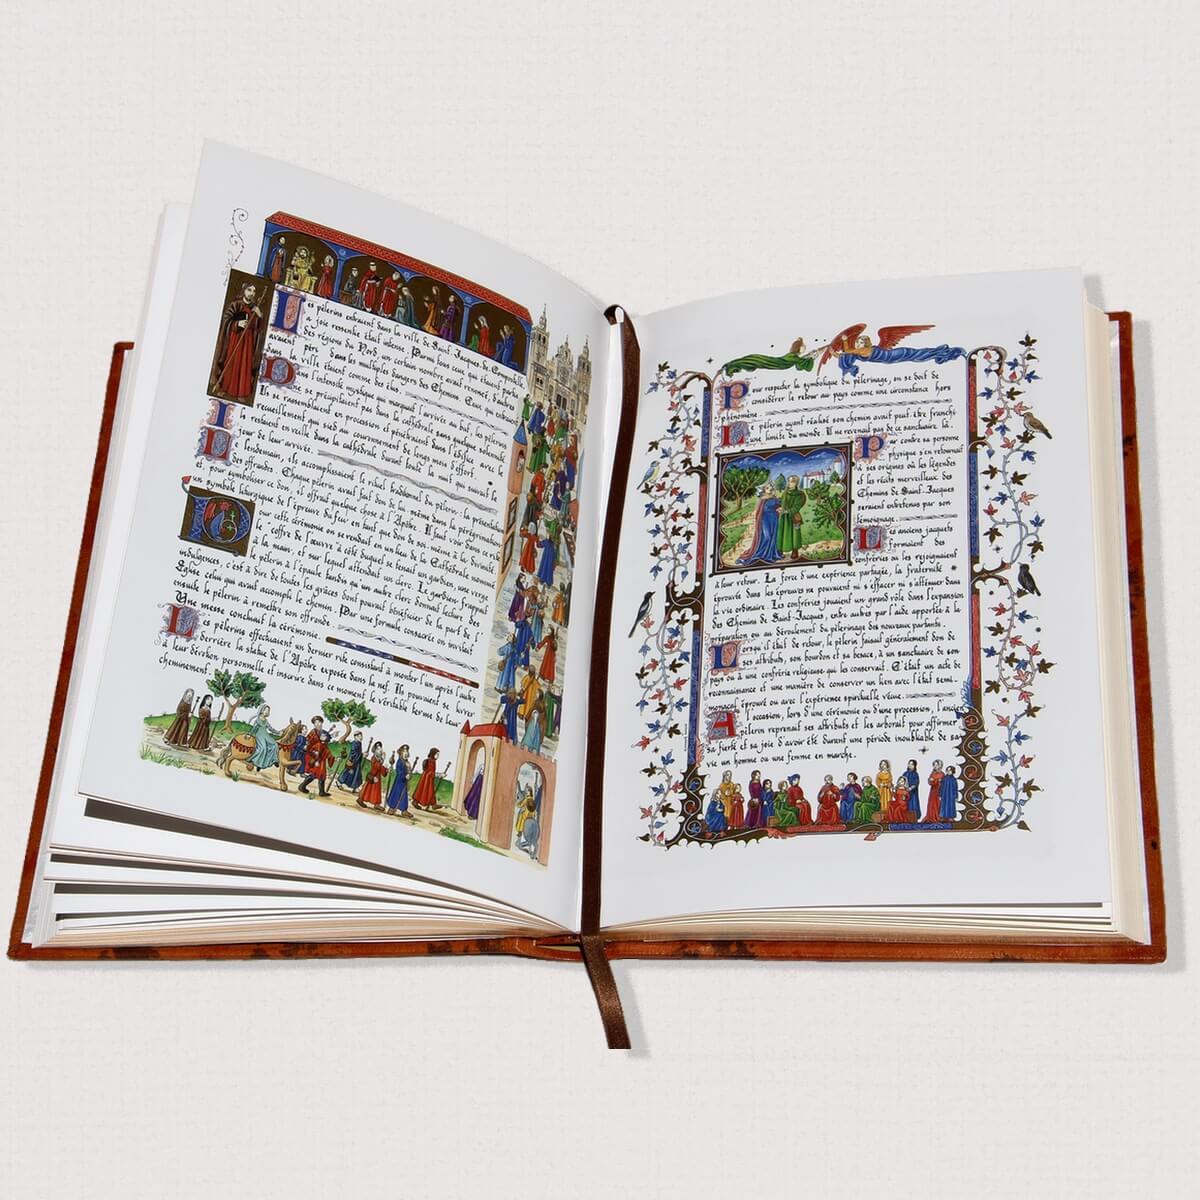 Les pèlerins entraient dans la ville de Saint-Jacques-de-Compostelle
la joie ressentie était intense. Parmi tous ceux qui étaient partis
des régions du Nord, un certain nombre avait renoncé, d'autres
avaient péri dans les multiples dangers des Chemins. Ceux qui entraient
dans la ville étaient comme des élus.
Ils se précipitaient pas dans la cathédrale sans quelque solennité
dans l'intensité mystique qui marquait l'arrivée au but, les pèlerins
se rassemblaient en procession et pénétraient dans l'édifice avec le
recueillement qui sied au couronnement de longs mois d'effort.
Ils restaient en veille dans la cathédrale durant toute la nuit qui suivait le
jour de leur arrivée.
Le lendemain, ils accomplissaient le rituel traditionnel du pèlerin: la présentation
des offrandes. Chaque pèlerin avait fait don de lui même dans la pérégrination
et, pour symboliser ce don, il offrait quelque chose à l'Apôtre. Il faut voir dans ce rite
un symbole liturgique de l'épreuve du feu en tant que don de soi-même à la Divinité
Pour cette cérémonie on se rendait en un lieu de la Cathédrale nommé
le "coffre de l'œuvre" à côté duquel se tenait un gardien, une verge
à la main, et sur lequel attendait un clerc. Le gardien, frappait
le pèlerin à l'épaule tandis qu'un autre clerc donnait lecture des
indulgences, c'est à dire de toutes les grâces dont pouvait bénéficier de la part de l'
Église celui qui avait accompli le chemin. Par une formule consacrée on invitait
ensuite le pèlerin à remettre son offrande.
Une messe concluait la cérémonie.
Les pèlerins effectuaient un dernier rite consistant à monter l'un après l'autre
derrière la statue de l'Apôtre exposée dans la nef. Ils pouvaient se livrer
à leur dévotion personnelle et inscrire dans ce moment le véritable terme de leur
cheminement.
Pour respecter la symbolique du pèlerinage, on se doit de
considérer le retour au pays comme une circonstance hors
phénomène.
Le pèlerin ayant réalisé son chemin avait peut-être franchi
une limite du monde. Il ne revenait pas de ce sanctuaire là.
Par contre sa personne
physique s'en retournait
à ses origines où les légendes
et les récits merveilleux des
Chemins de Saint-Jacques
seraient entretenus par son
témoignage.
Les anciens jacquets
formaient des
confréries où les rejoignaient
à leur retour. La force d'une expérience partagée, la fraternité
éprouvée dans les épreuves ne pouvaient ni s'effacer ni s'atténuer dans
la vie ordinaire. Les confréries jouaient un grand rôle dans l'expansion
des Chemins de Saint-Jacques, entre autres par l'aide apportée à la
préparation ou au déroulement du pèlerinage des nouveaux partants.
Lorsqu'il était de retour, le pèlerin faisait généralement don de
ses attributs, son bourdon et sa besace, à un sanctuaire de son
pays ou à une confrérie religieuse qui les conservait. C'était un acte de
reconnaissance et une manière de conserver un lien avec l'état semi-
monacal éprouvé ou avec l'expérience spirituelle vécue.
A l'occasion, lors d'une cérémonie ou d'une procession, l'ancien
pèlerin reprenait ses attributs et les arborait pour affirmer
sa fierté et sa joie d'avoir été durant une période inoubliable de sa
vie un homme ou une femme en marche.